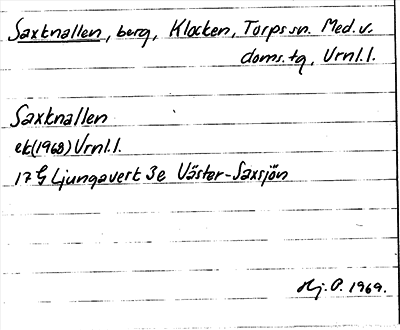 Saxknallen, berg, Klocken, Torps sn. Med. v.
doms.tg, Vrnl.l.
Saxknallen
ek(1968) Vrnl.l.
17 G Ljungaverk 3e Väster-Saxsjön
Hj. O. 1969.